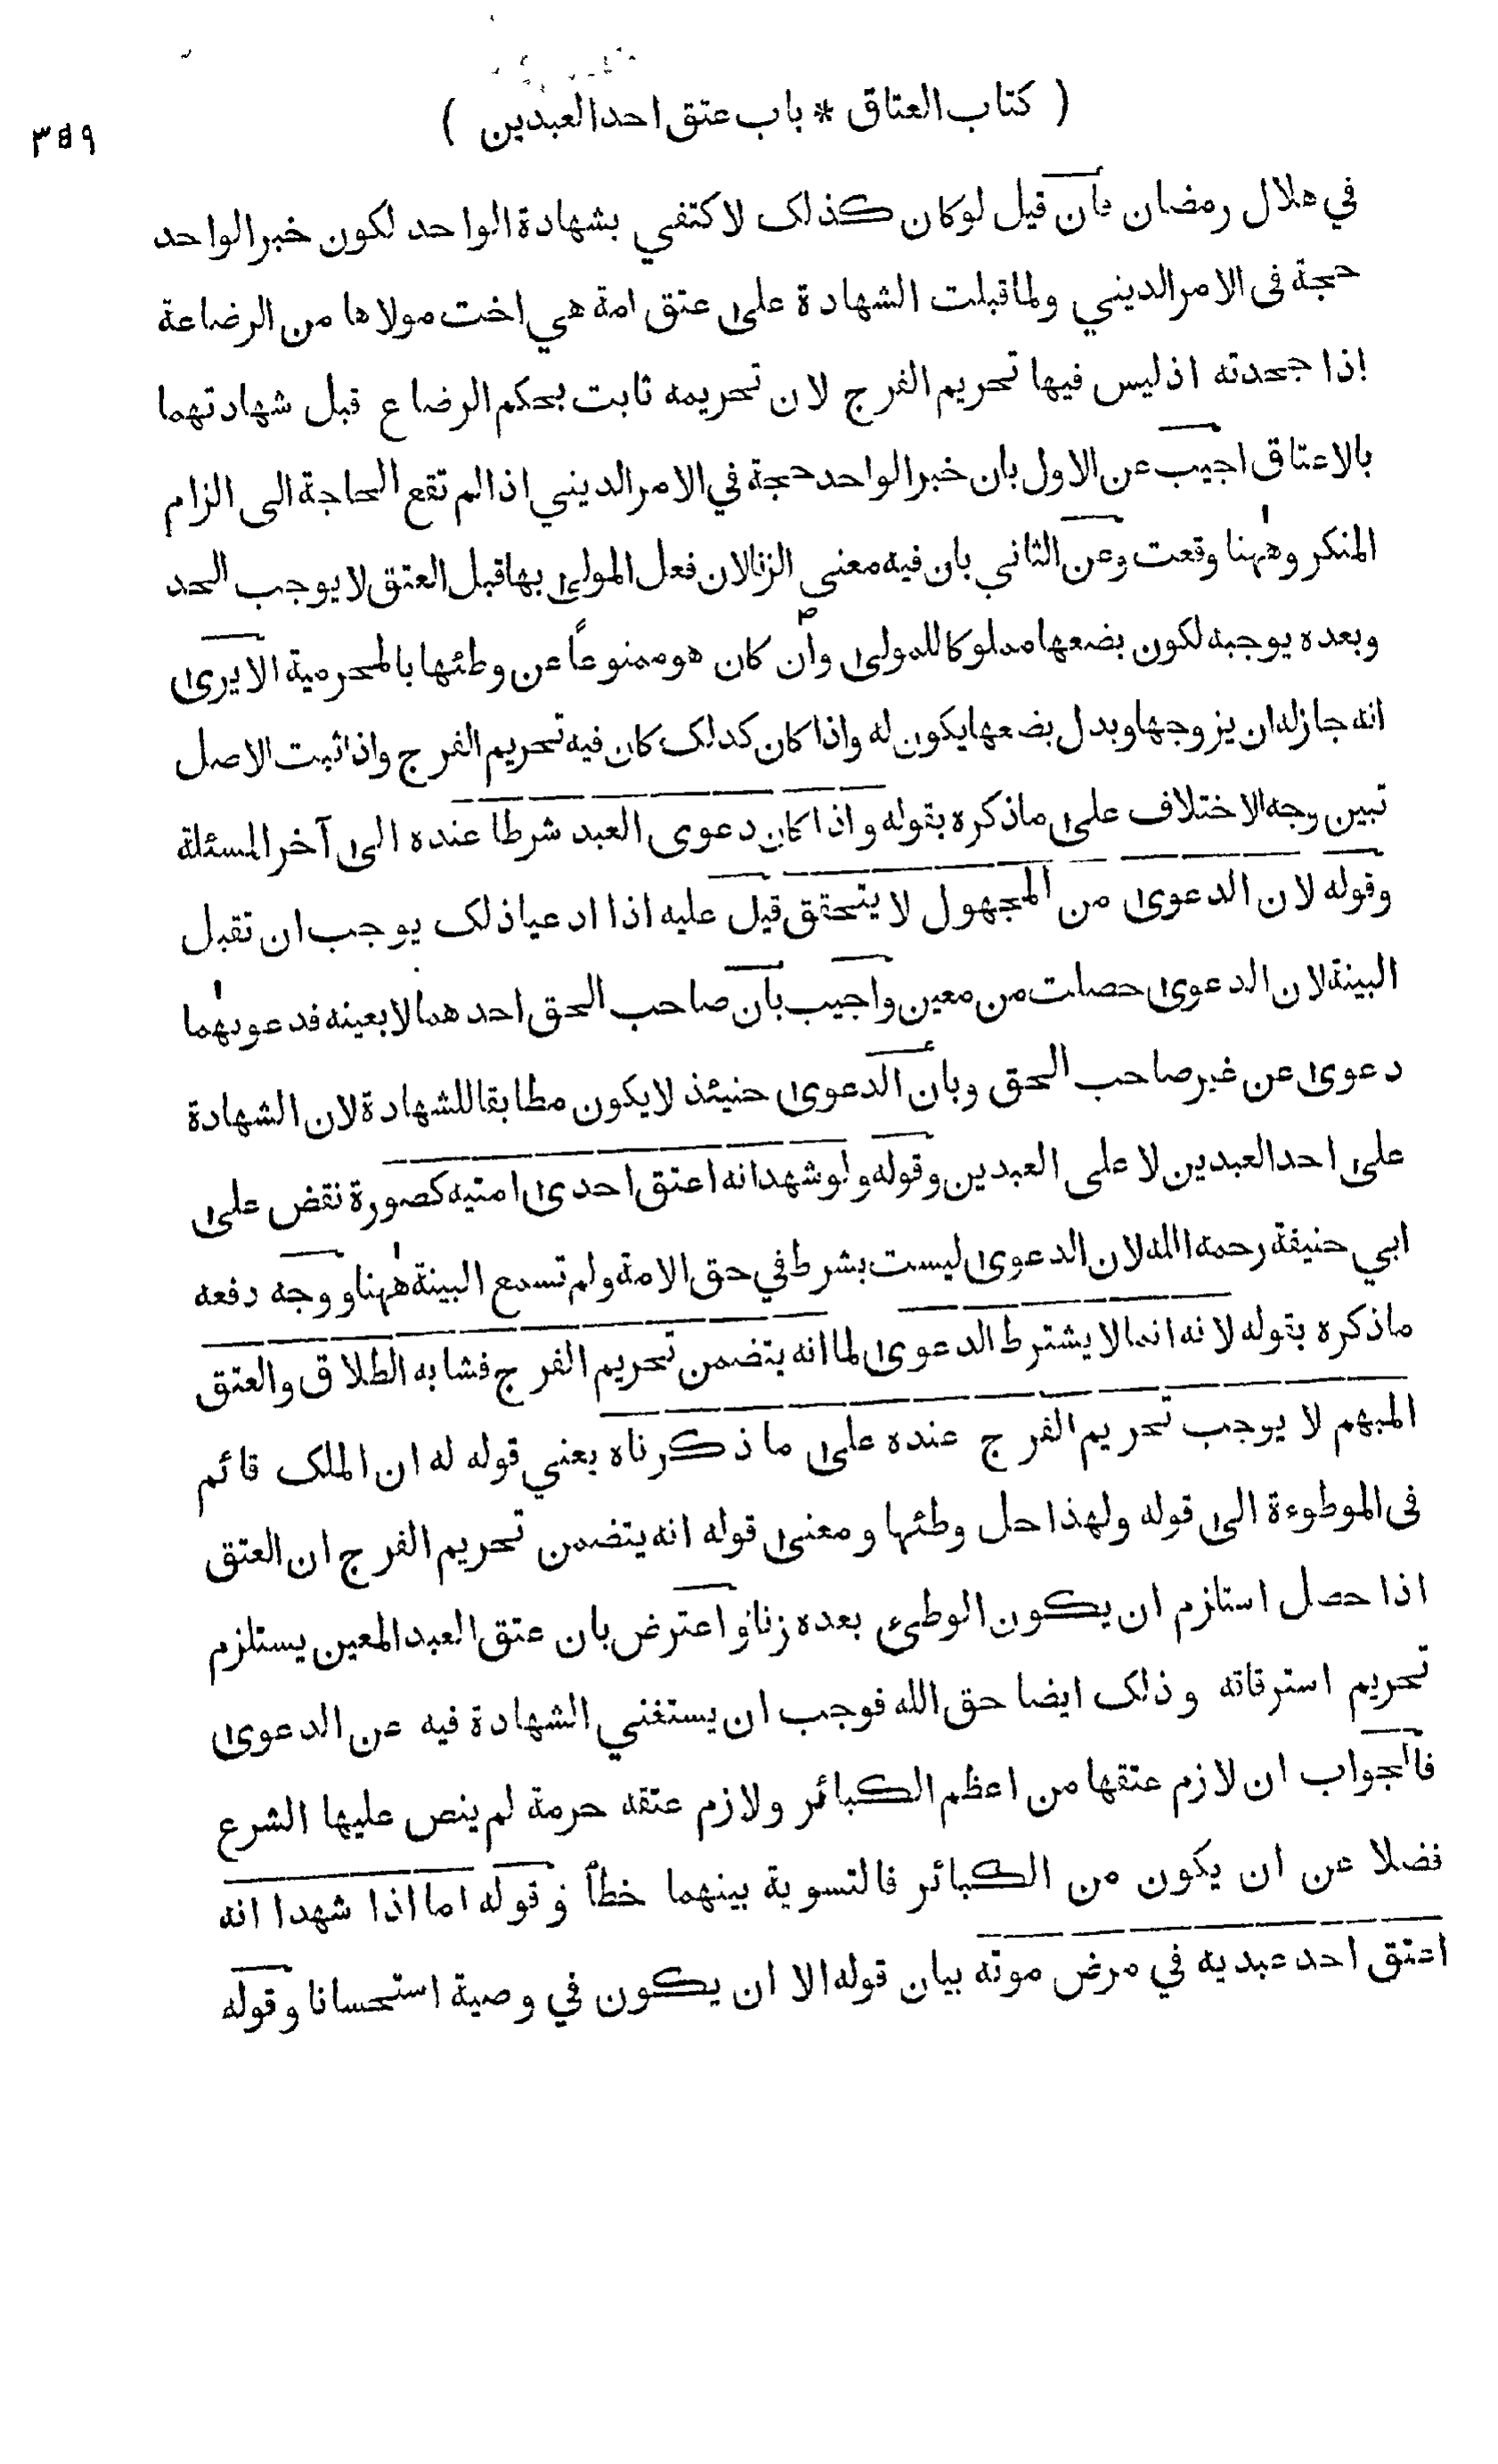 ( كتاب العتاق * باب عتق احد العبدين )
٣٥٩
في هلال رمضان فأن قيل لوكان كذلك لاكتفي بشهادة الواحد لكون خبر الواحد
حجة فى الامر الديني ولماقبلت الشهادة على عتق امة هي اخت مولاها من الرضاعة
اذا جحدته اذليس فيها تحريم الفرج لان تحريمه ثابت بحكم الرضاع قبل شهادتهما
بالاعتاق اجيب عن الاول بان خبر الواحد حجة في الامر الديني اذالم تقع الحاجة الى الزام
المنكر وههنا وقعت وعن الثاني بان فيه معنى الزنالان فعل المولى بهاقبل العتق لايوجب الحد
وبعده يوجبه لكون بضعها مملوكا للمولى وان كان هو ممنوعاً عن وطئها بالمحرمية الايرى
انه جازله ان يزوجها وبدل بضعها يكون له واذا كان كدلك كان فيه تحريم الفرج واذا ثبت الاصل
تبين وجه الاختلاف على ماذكره بقوله واذا كان دعوى العبد شرطا عنده الى آخر المسئلة
وقوله لان الدعوى من المجهول لايتحقق قيل عليه اذا ادعياذلك يوجب ان تقبل
البينة لان الدعوى حصلت من معين واجيب بأن صاحب الحق احدهما لابعينه فدعوىهما
دعوى عن غير صاحب الحق وبان الدعوى حنيئذ لايكون مطابقا للشهادة لان الشهادة
على احد العبدين لا على العبدين وقوله ولو شهدا انه اعتق احدى امتيه كصورة نقض على
ابي حنيفة رحمه الله لان الدعوى ليست بشرط في حق الامة ولم تسمع البينة ههنا ووجه دفعه
ماذكره بقوله لانه انما لايشترط الدعوى لما انه يتضمن تحريم الفرج فشابه الطلاق والعتق
المبهم لا يوجب تحريم الفرج عنده على ما ذكرناه يعني قوله له ان الملك قائم
فى الموطوءة الى قوله ولهذا حل وطئها ومعنى قوله انه يتضمن تحريم الفرج ان العتق
اذا حصل استلزم ان يكون الوطئ بعده زنا واعترض بان عتق العبد المعين يستلزم
تحريم استرقاته وذلك ايضا حق الله فوجب ان يستغني الشهادة فيه عن الدعوى
فالجواب ان لازم عتقها من اعظم الكبائر ولازم عتقه حرمة لم ينص عليها الشرع
فضلا عن ان يكون من الكبائر فالتسوية بينهما خطأ وقوله اما اذا شهدا انه
اعتق احد عبديه في مرض موته بيان قوله الا ان يكون في وصية استحسانا وقوله